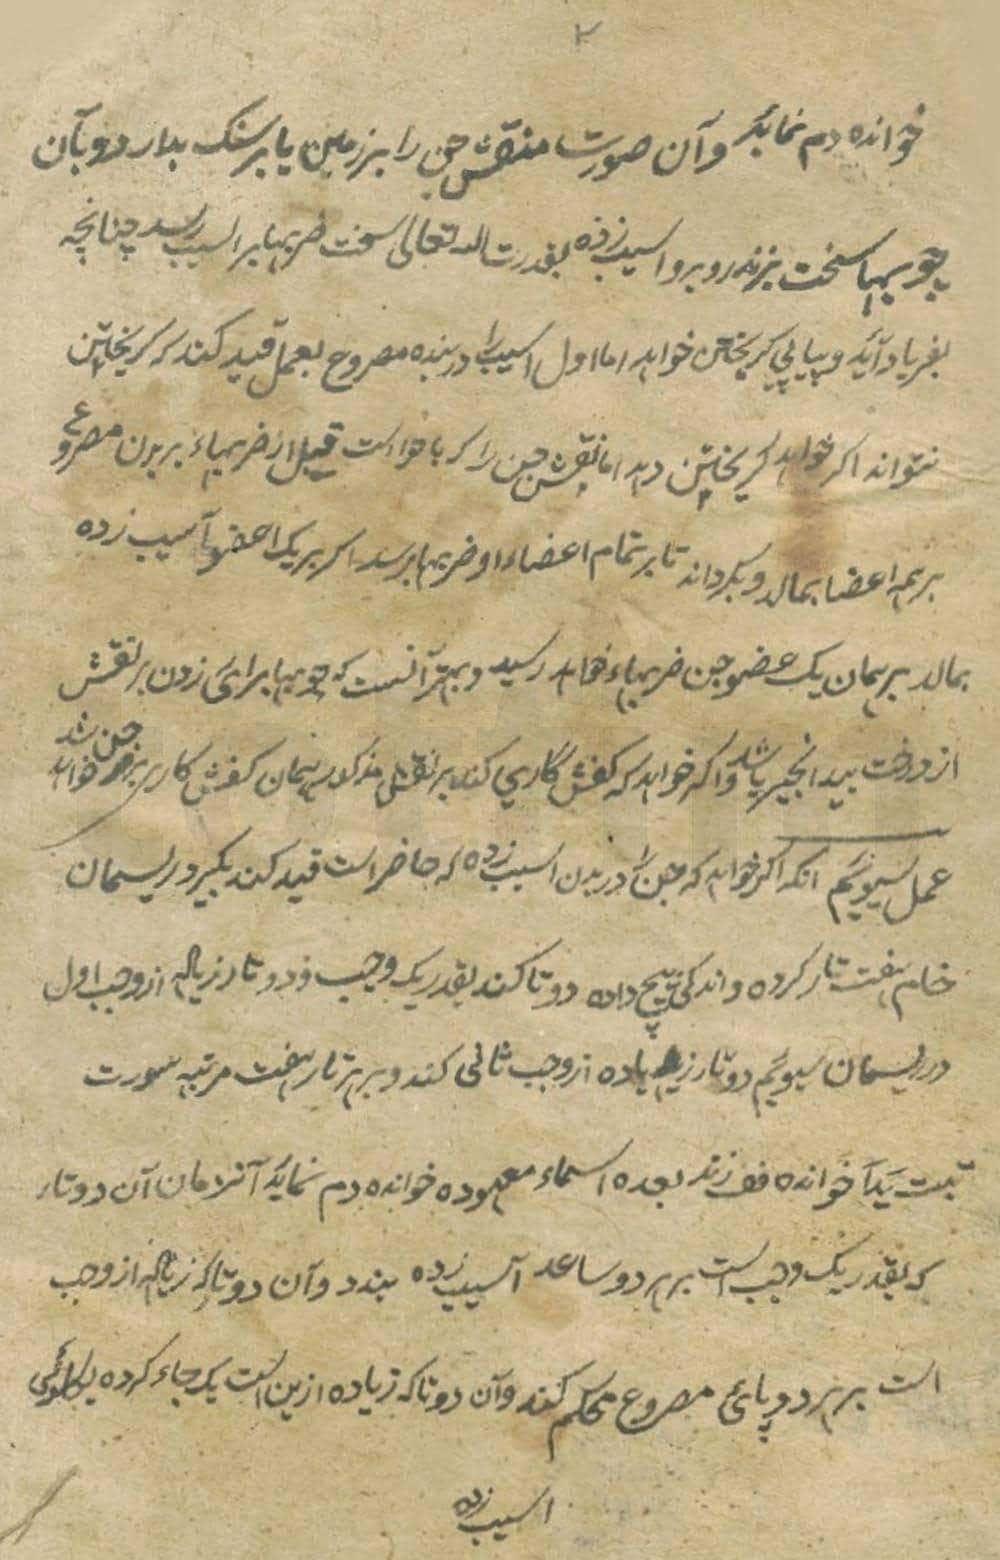 ۲
خوانده دم نماید و آن صورت منقش جن را بر زمین یا بر سنک بدارد و بآن
چوبها سخت بزند روبرو اسیب زده بقدرت الله تعالی سخت ضربها بر اسیب رسد چنانچه
بفریاد آید و پیاپی کریختن خواهد اما اول اسیب را در بنده مصروع بعمل قید کند که کریختن
نتواند اکر خواهد کریختن دهد اما نقش جن را که باخواست قبل از ضربهاء بر بدن مصروع
بر همه اعضا بمالد و بکرداند تا بر تمام اعضاء او ضربها برسد اکر بر یک اعضو آسیب زده
بمالد بر همان یک عضو جن ضربهاء خواهد رسید و بهتر آنست که چوبها برای زدن بر نقش
از درخت بید انجیر باشد و اکر خواهد که کفش کاری کند بر نقش مذکور همان کفش کاری بر جن خواهد شد
عمل سیوئیم انکه اکر خواهد که جن را در بدن اسیب زده که حاضر است قید کند بکیرد ریسمان
خام هفت تار کرده و اندکی پیچ داده دو تا کند بقدر یک وجب و دو تار زیاده از وجب اول
در ریسمان سیوئیم دو تار زیاده از وجب ثانی کند و بر هر تار هفت مرتبه سورت
تبت یدا خوانده فف زند بعده اسماء معهوده خوانده دم نماید آنزمان آن دو تار
که بقدر یک وجب است بر هر دو ساعد آسیب زده بندد و آن دو تا که زیاده از وجب
است بر هر دو پائی مصروع محکم کند و آن دو تا که زیاده ازین است یک جاء کرده بکلوئی
اسیب زده